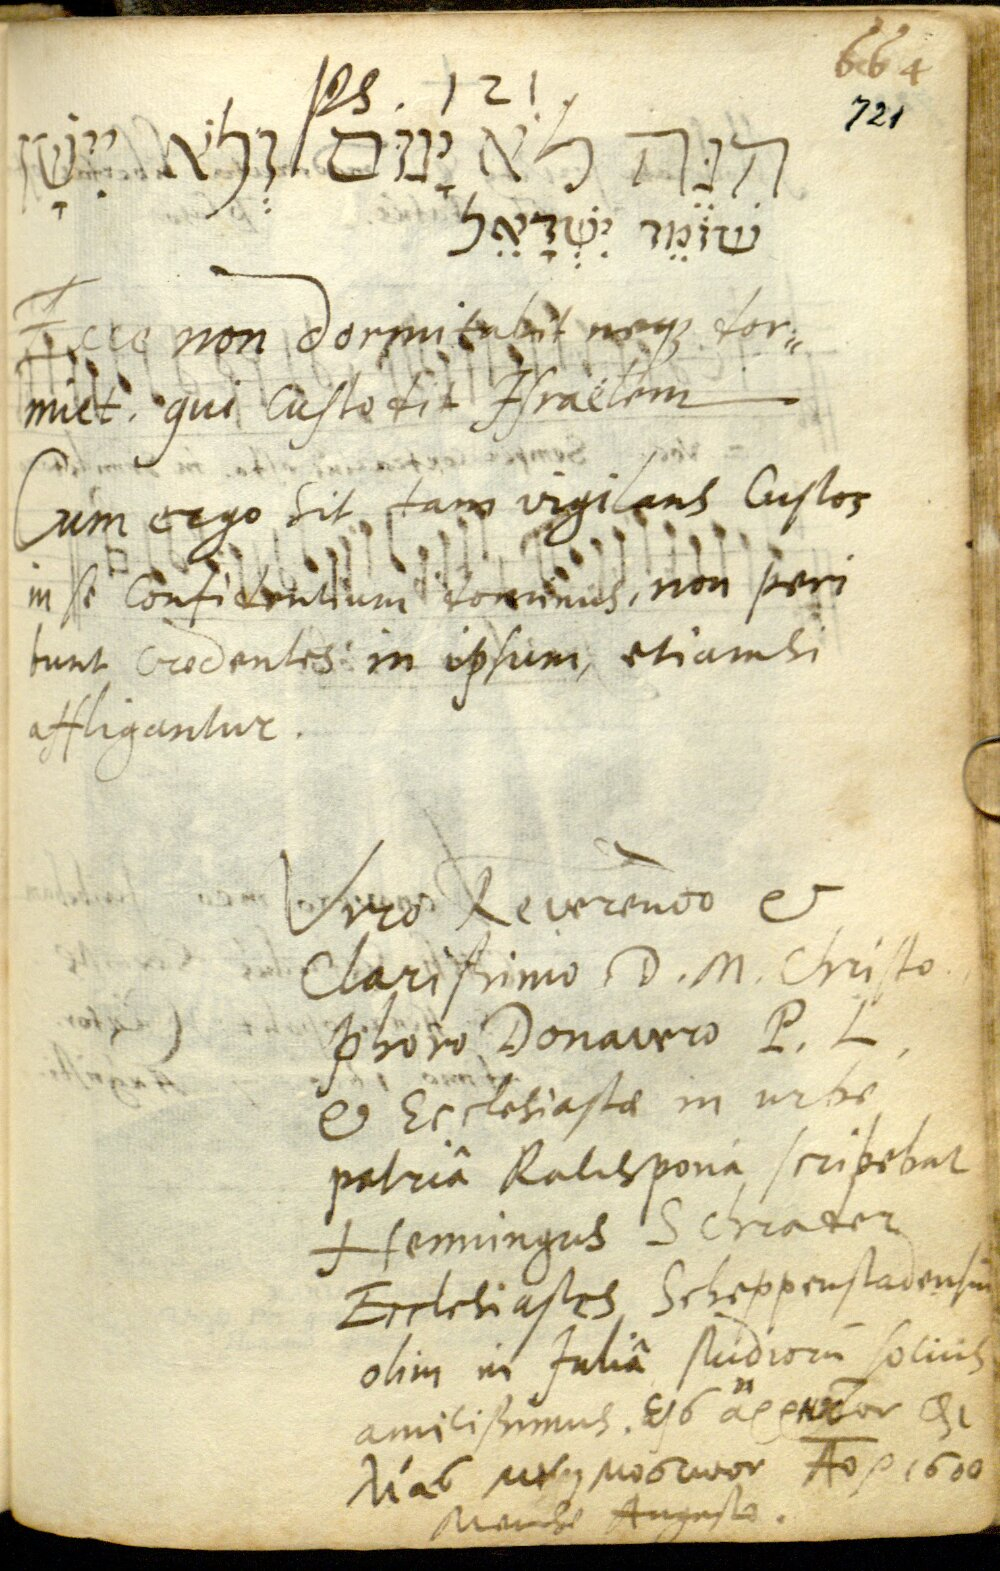 664
721
Ps. 121.
הִנֵּה לֹא יָנוּם וְלֹא יִישָׁן
שׁוֹמֵר יִשְׂרָאֵל
Ecce non dormitabit neq₃ dor„
miet. qui Custodit Israëlem
Cum ergo sit tam vigilans Custos
in se Confidentium dominus, non peri
bunt Credentes in ipsum, etiamsi
affligantur.
Viro Reverendo &
Clarissimo D. M. Christo
phoro Donavero P. L.
& Ecclesiastæ in urbe
patriâ Ratisponâ scribebat
Henningus Schrader
Ecclesiastes Scheppenstadensis
olim in Juliâ studiorū socius
amicissimus. εἰς
φιλίας μνημόσυνον Aº 1600
Mense Augusto.